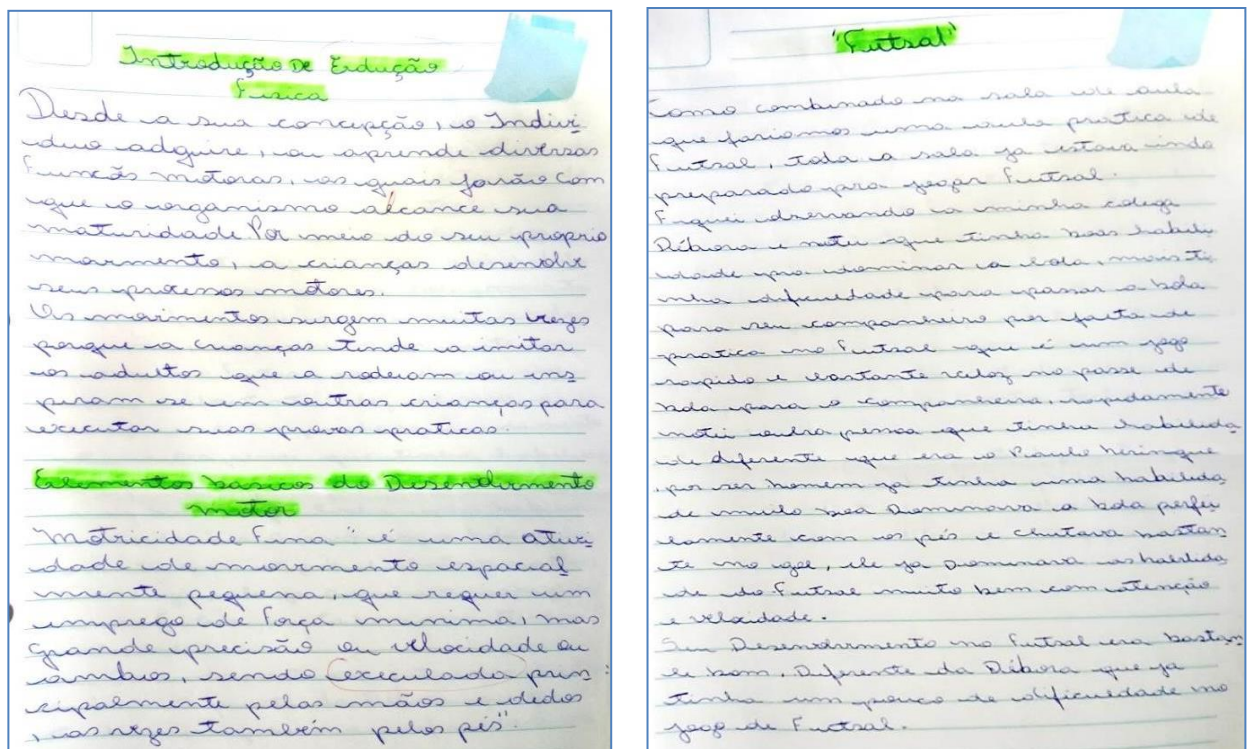 Introdução De Edução
Fisica
Desde a sua concepção, o Indivi
duo adquire, ou aprende diversas
Funcãs motoras, as quais farão com
que o organismo alcance sua
maturidade Por meio do seu proprio
movimento, a crianças desenvolve
seus processos motores.
Os movimentos surgem muitas vezes
porque a crianças tende a imitar
os adultos que a rodeiam ou ins
piram se em outras crianças para
executar suas provas praticas.
Elementos basicos do Desenvolvimento
motor
Motricidade Fina " é uma ativi
dade de movimento espacial
mente pequena, que requer um
emprego de Força minima, mas
grande precisão ou velocidade ou
ambos, sendo (executada prin
cipalmente pelas mãos e dedos
, as vezes também pelos pés".
"Futsal"
Como combinado na sala de aula
que fariamos uma aula pratica de
Futsal, toda a sala ja estava indo
preparado pra jogar Futsal.
Fiquei observando a minha colega
Débora e notei que tinha boas habili
dade pra dominar a bola, mais ti
nha dificuldade para passar a bola
para seu companheiro por falta de
pratica no Futsal que é um jogo
rapido e bastante veloz no passe de
bola para o companheiro, rapidamente
notei outra pessoa que tinha habilida
de diferente que era o Paulo henrique
, por ser homem ja tinha uma habilida
de muito boa Dominava a bola perfei
tamente com os pés e chutava bastan
te no gol, ele ja Dominava as habilida
de do Futsal muito bem com atenção
e velocidade.
Seu Desenvolvimento no Futsal era bastan
te bom, Diferente da Débora que ja
tinha um pouco de dificuldade no
jogo de Futsal.